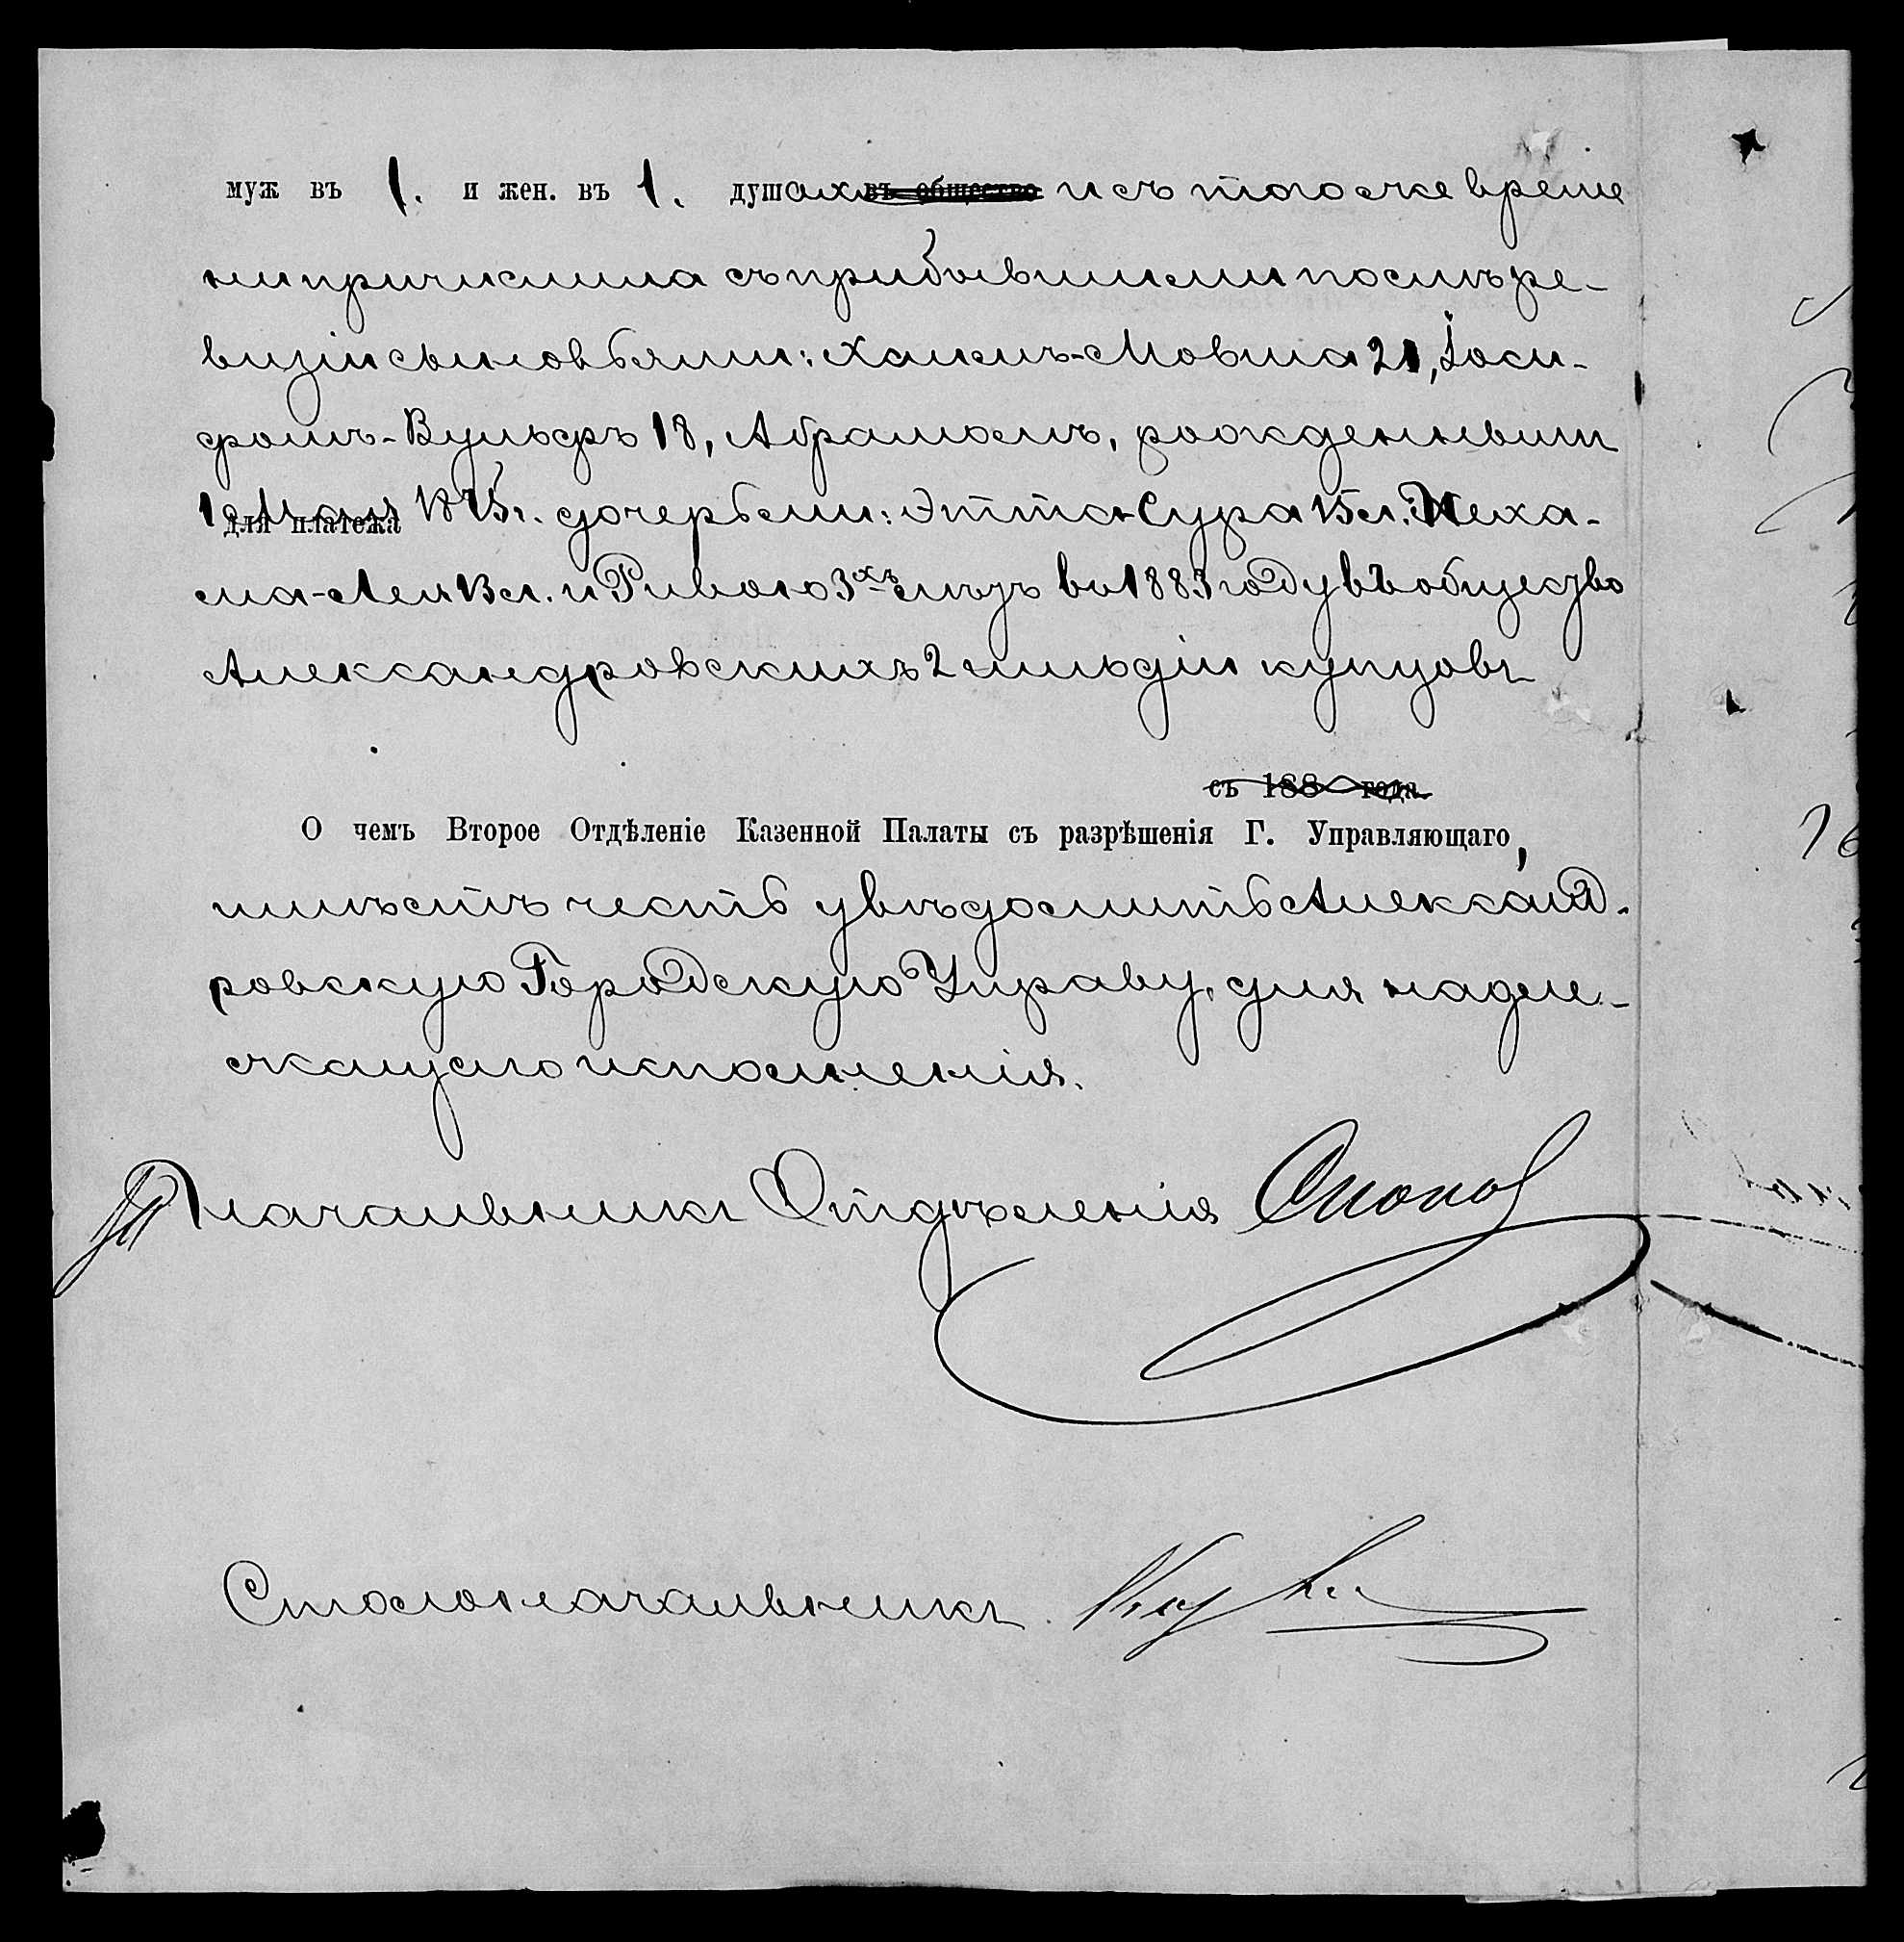 муж въ 1. и жен. въ 1. душахъ въ общество и съ того же време
ни причислила съ прибывшими послѣ ре-
визіи сыновьями: Хаимъ-Мовша 21, Іоси-
фомъ-Вульфъ 18, Абрамомъ, рожденнымъ
1 Мая 1875г. дочерьми: Этта-Сура 15 л. Неха-
для платежа
ма-Лея 13 л. и Ривою 3хъ лѣтъ въ 1883 году въ общество
Александровскихъ 2 гильдіи купцовъ
съ 188 года.
О чемъ Второе Отдѣленіе Казенной Палаты съ разрѣшенія Г. Управляющаго,
имѣетъ честь увѣдомить Александ-
ровскую Городскую Управу, для надле-
жащаго исполненія.
Начальникъ Отдѣленія
Столоначальникъ